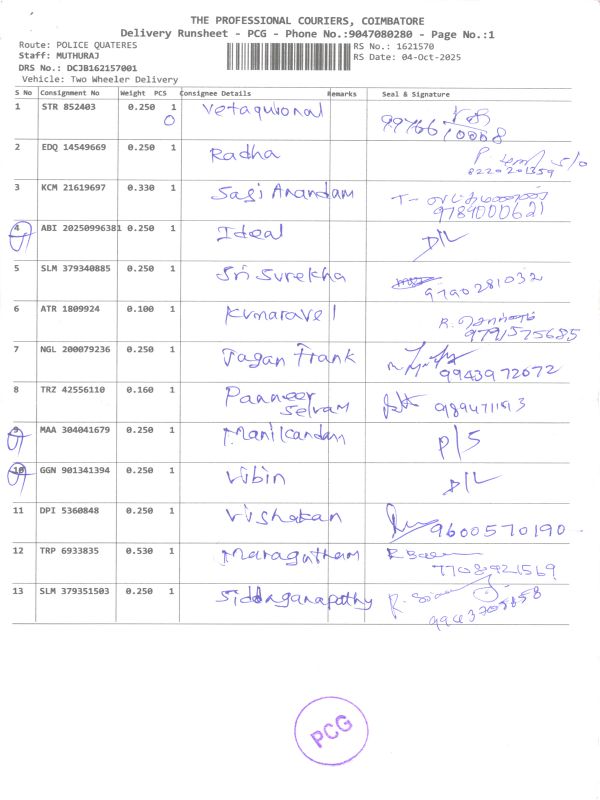 THE PROFESSIONAL COURIERS, COIMBATORE
Delivery Runsheet - PCG - Phone No.:9047080280 - Page No.:1
Route: POLICE QUATERES RS No.: 1621570
Staff: MUTHURAJ RS Date: 04-Oct-2025
DRS No.: DCJB162157001
Vehicle: Two Wheeler Delivery
S No Consignment No Weight PCS Consignee Details Remarks Seal & Signature
1 STR 852403 0.250 1
0 9976610008
2 EDQ 14549669 0.250 1 Radha
8220201359
3 KCM 21619697 0.330 1 Sagi Anandam
9784000621
4 ABI 20250996381 0.250 1 Ideal D/L
5 SLM 379340885 0.250 1 Sri Surekha 9790281032
6 ATR 1809924 0.100 1 Kumaravel
9791575685
7 NGL 200079236 0.250 1 Jagan Frank 9943972672
8 TRZ 42556110 0.160 1 Panneer
Selvam
9 MAA 304041679 0.250 1 Manikandan P/S
10 GGN 901341394 0.250 1 Vibin D/L
11 DPI 5360848 0.250 1 Vishakan 9600570190
12 TRP 6933835 0.530 1 Maragatham
7708921569
13 SLM 379351503 0.250 1 Siddhaganapathy
PCG